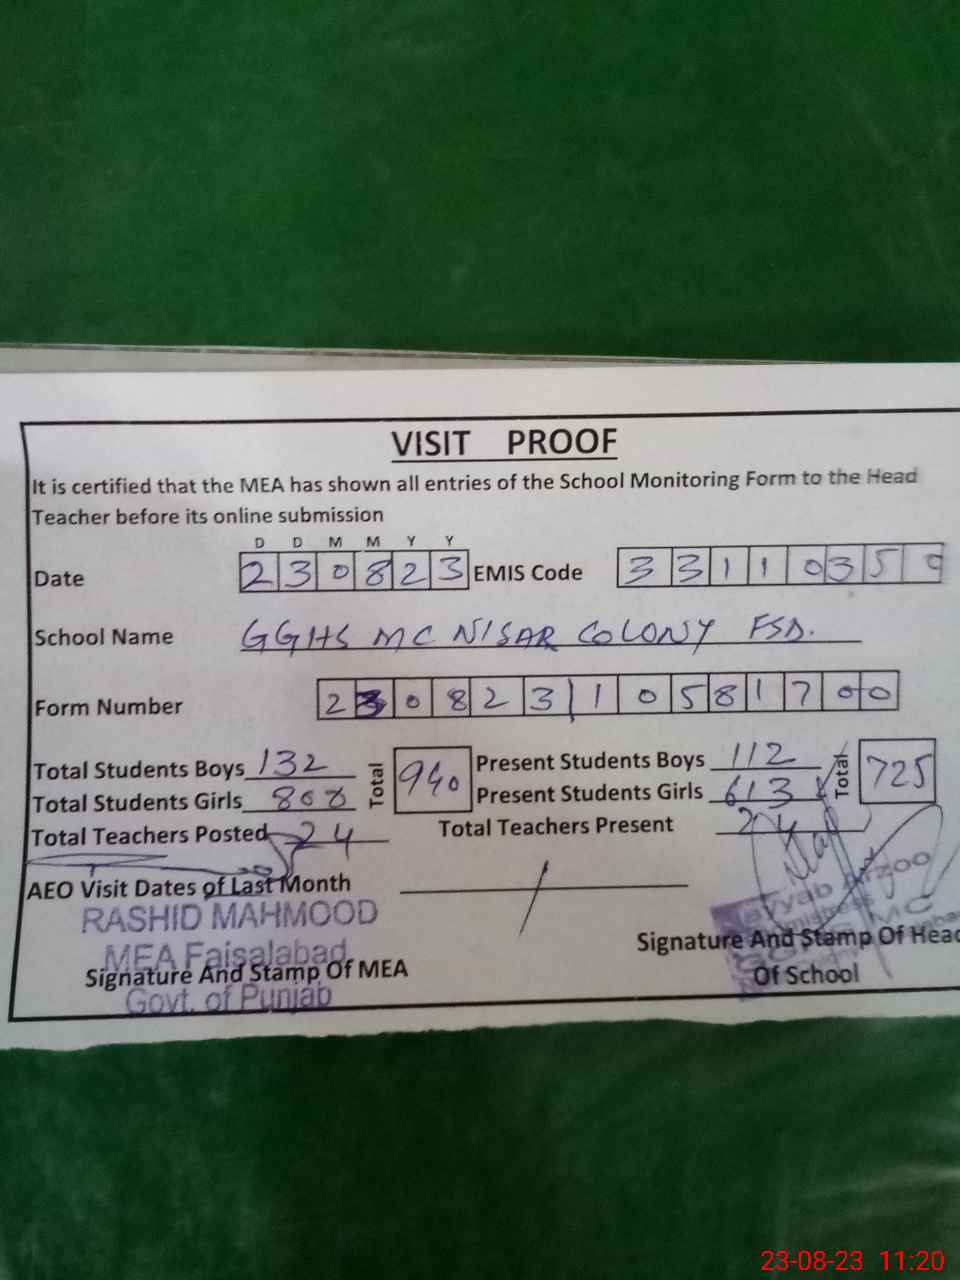 VISIT PROOF
It is certified that the MEA has shown all entries of the School Monitoring Form to the Head
Teacher before its online submission
D D M M Y Y
Date 2 3 0 8 2 3 EMIS Code 3 3 1 1 0 3 5 0
School Name GGHS MC NISAR COLONY FSD.
Form Number 2 3 0 8 2 3 1 0 5 8 1 7 0 0
Total Students Boys 132 Total 940 Present Students Boys 112 Total 725
Total Students Girls 808 Present Students Girls 613
Total Teachers Posted 24 Total Teachers Present 24
AEO Visit Dates of Last Month
RASHID MAHMOOD
MEA Faisalabad
Signature And Stamp Of MEA
Govt. of Punjab
MC
Signature And Stamp Of Head
Of School
23-08-23 11:20